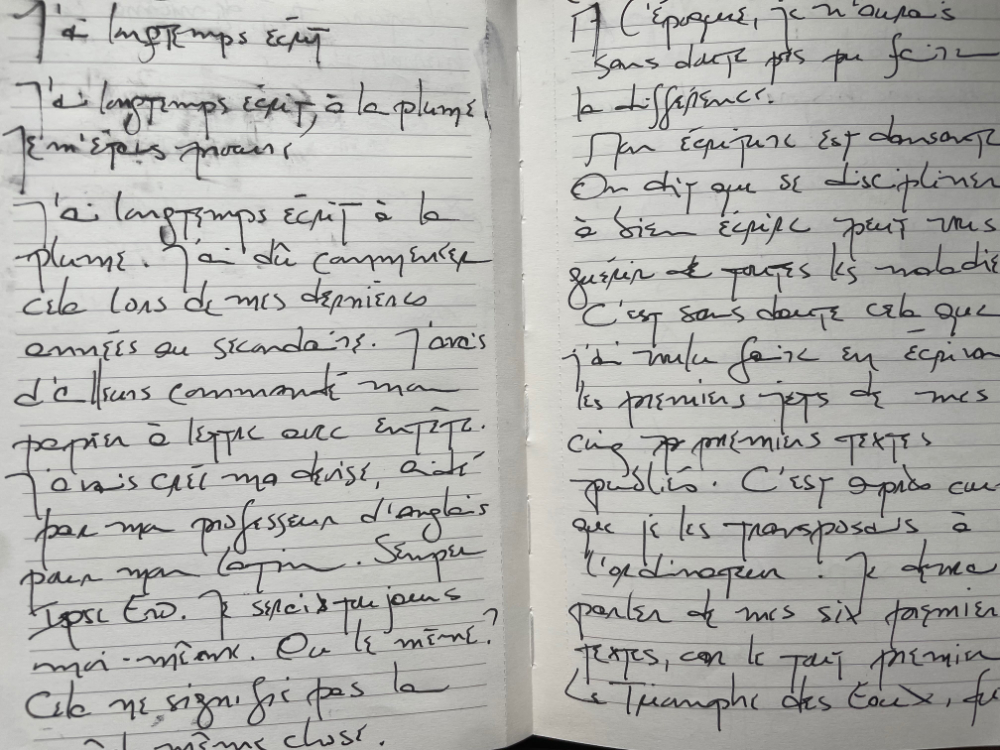 J'ai longtemps écrit
J'ai longtemps écrit, à la plume
Je m'étais
J'ai longtemps écrit à la
plume. J'ai dû commencer
cela lors de mes dernières
années au secondaire. J'avais
d'ailleurs commandé mon
papier à lettre avec entête.
J'avais créé ma devise, aidé
par mon professeur d'anglais
pour mon latin. Semper
Ipse Ero. Je serais toujours
moi-même. Ou le même?
Cela ne signifie pas la
même chose.
A l'époque, je n'aurais
sans doute pas pu faire
la différence.
Mon écriture est dansante
On dit que se discipliner
à bien écrire peut vous
guérir de toutes les maladie
C'est sans doute cela que
j'ai voulu faire en écrivan
les premiers jets de mes
cinq premiers textes
publiés. C'est après cou
que je les transposais à
l'ordinateur. Je devra
parler de mes six premier
textes, car le tout premier
Le Triomphe des Eaux, fu